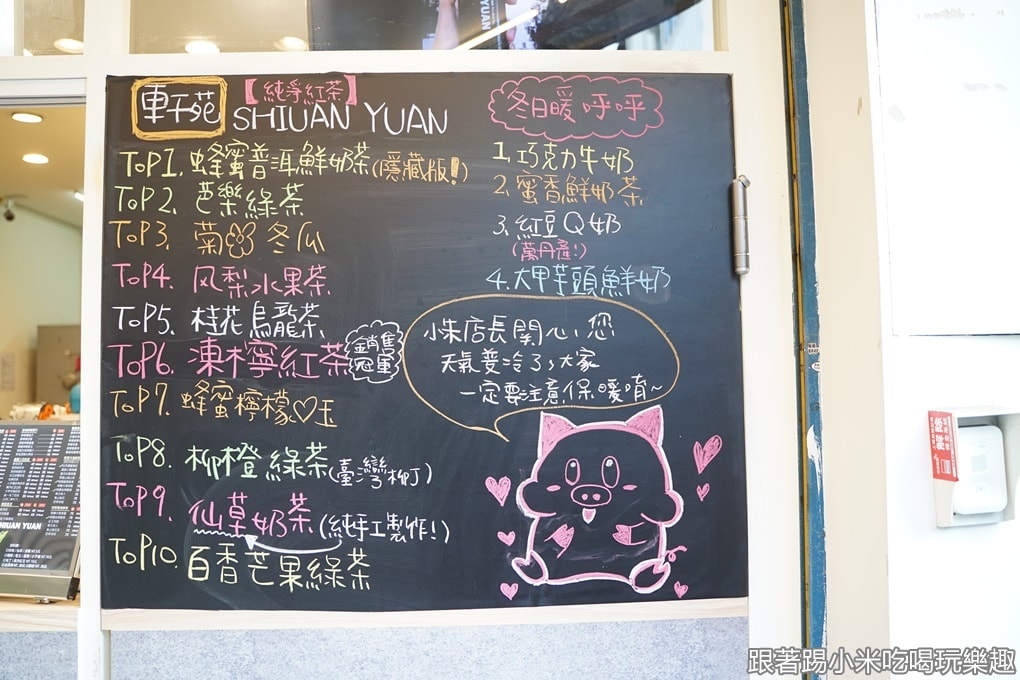 軒苑
【純淨紅茶】
SHIUAN YUAN
ToP1. 蜂蜜普洱鮮奶茶(隱藏版!)
ToP2. 芭樂綠茶
ToP3. 菊 冬瓜
ToP4. 风梨水果茶
ToP5. 桂花烏龍茶
ToP6. 凍檸紅茶
銷售
冠軍
ToP7. 蜂蜜檸檬♡玉
ToP8. 柳橙綠茶(臺灣柳丁)
ToP9. 仙草奶茶(純手工製作!)
ToP10. 百香芒果綠茶
冬日暖呼呼
1. 巧克力牛奶
2. 蜜香鮮奶茶
3. 紅豆Q奶
(萬丹產!)
4. 大甲芋頭鮮奶
小朱店長關心您
天氣變冷了,大家
一定要注意保暖唷~
SHIUAN YUAN
跟著踢小米吃喝玩樂趣